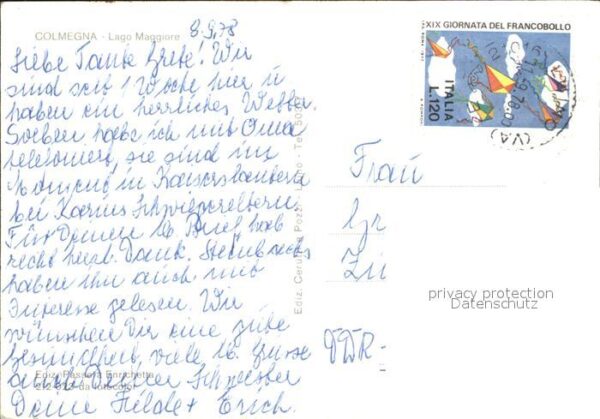 COLMEGNA - Lago Maggiore
8.9.78
Liebe Tante Grete! Wir
sind seit 1 Woche hier u.
haben ein herrliches Wetter.
Soeben habe ich mit Oma
telefoniert, sie sind im
Moment in Kaiserslautern
bei Karins Schwiegereltern.
Für Deinen lb. Brief hab
recht herzl. Dank.
haben ihn auch mit
Interesse gelesen. Wir
wünschen Dir eine gute
Gesundheit, viele lb. Grüsse
auch Deiner Schwester
Deine Hilde + Erich.
Ediz. Passera Enrichetta
da fotocolor
Ediz. Pozzi - Luino - Tel.
XIX GIORNATA DEL FRANCOBOLLO
ITALIA
L.120
(VA)
Frau
Gr
Zu
DDR-
privacy protection
Datenschutz